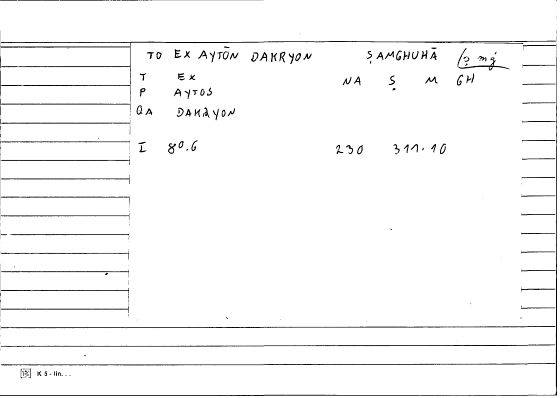 TO EX AYTŌN DAKRYON ṢAMGHUHĀ (ṣ mġ
T EX NA Ṣ M GH
P AYTOS
QA DAKRYON
I 80.6 230 311.10
K 5 - lin...